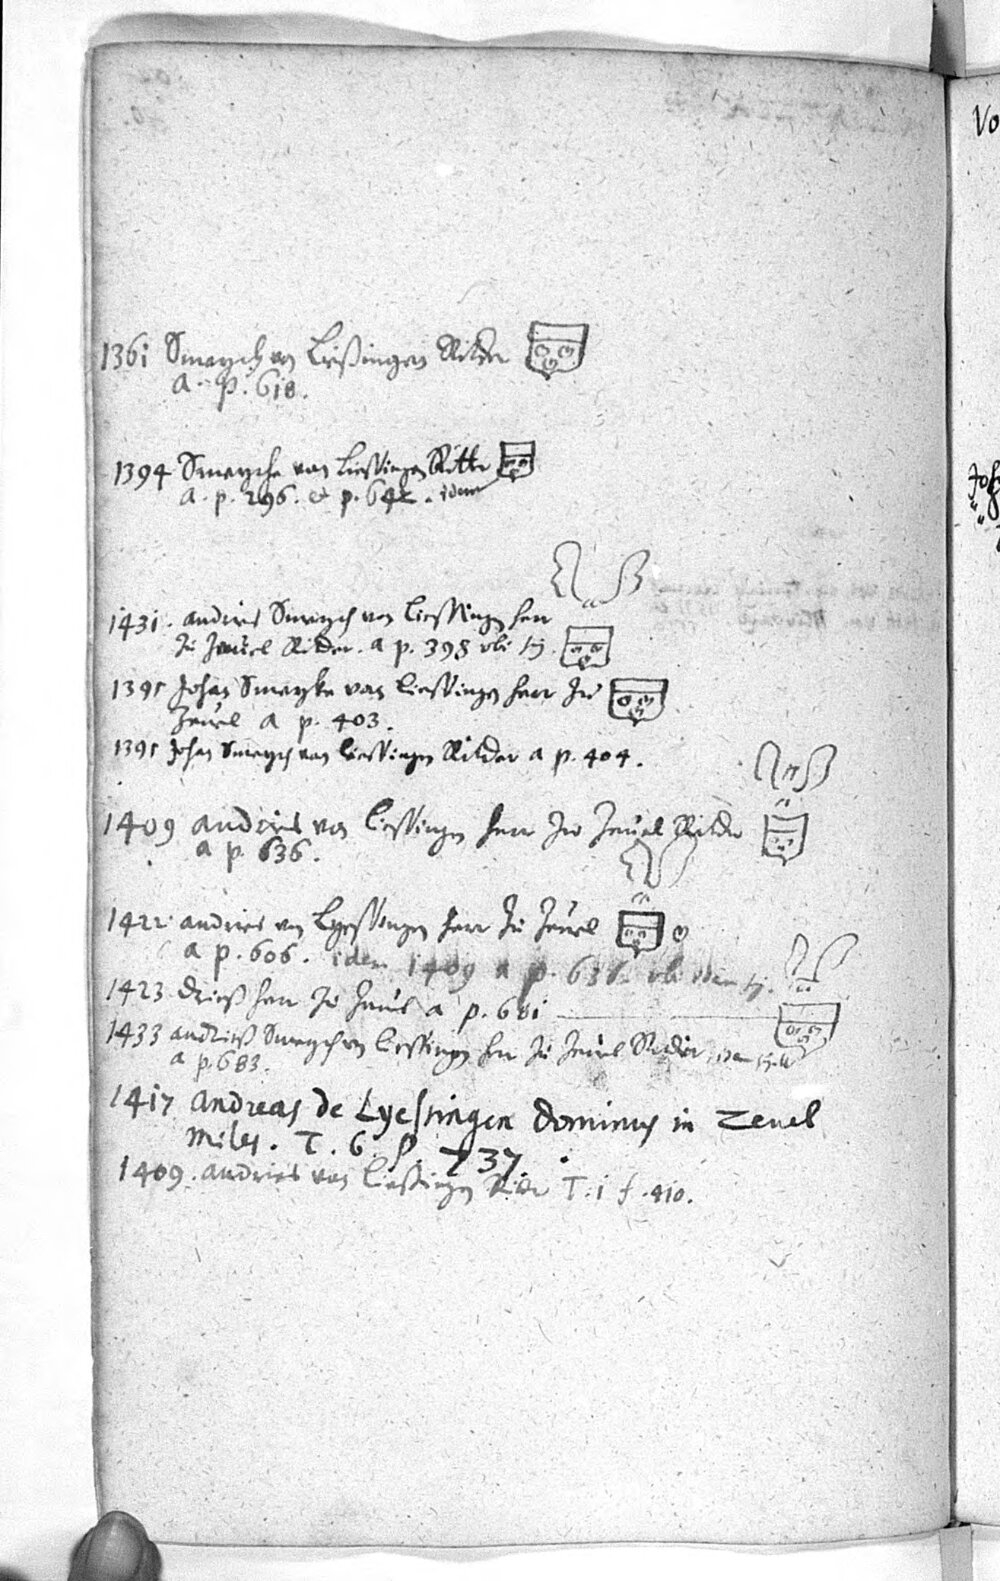 1361 Smeych von Liessingen Ritder
a. p. 618.
1394 Smeyche van Liessingen Ritter
a. p. 296. et p. 642. idem
1431. andries Smeych von Liessingen herr
Zu Zeuel Ritder. a p. 398 vbi sig.
1391 Johan Smeyke van Liessingen herr Zu
Zeuel a p. 403.
1391 Johan Smeych van Liessingen Ritder a p. 404.
1409 andries von Liessingen herr Zu Zeuel Ritder
a p. 636.
1422 andries von Lyessingen herr Zu Zeuel
a p. 606. idem 1409 a p. 636. vbi idem sig.
1423 Driess herr Zu Zeuel a p. 681
1433 andriess Smeych von Liessingen herr Zu Zeuel Ritder, idem
a p. 683.
1417 Andreas de Lyessingen Dominus in Zeuel
miles. T. 6. P. 737.
1409. andries van Liessingen Ritder T. 1 f. 410.
Vo
Joh